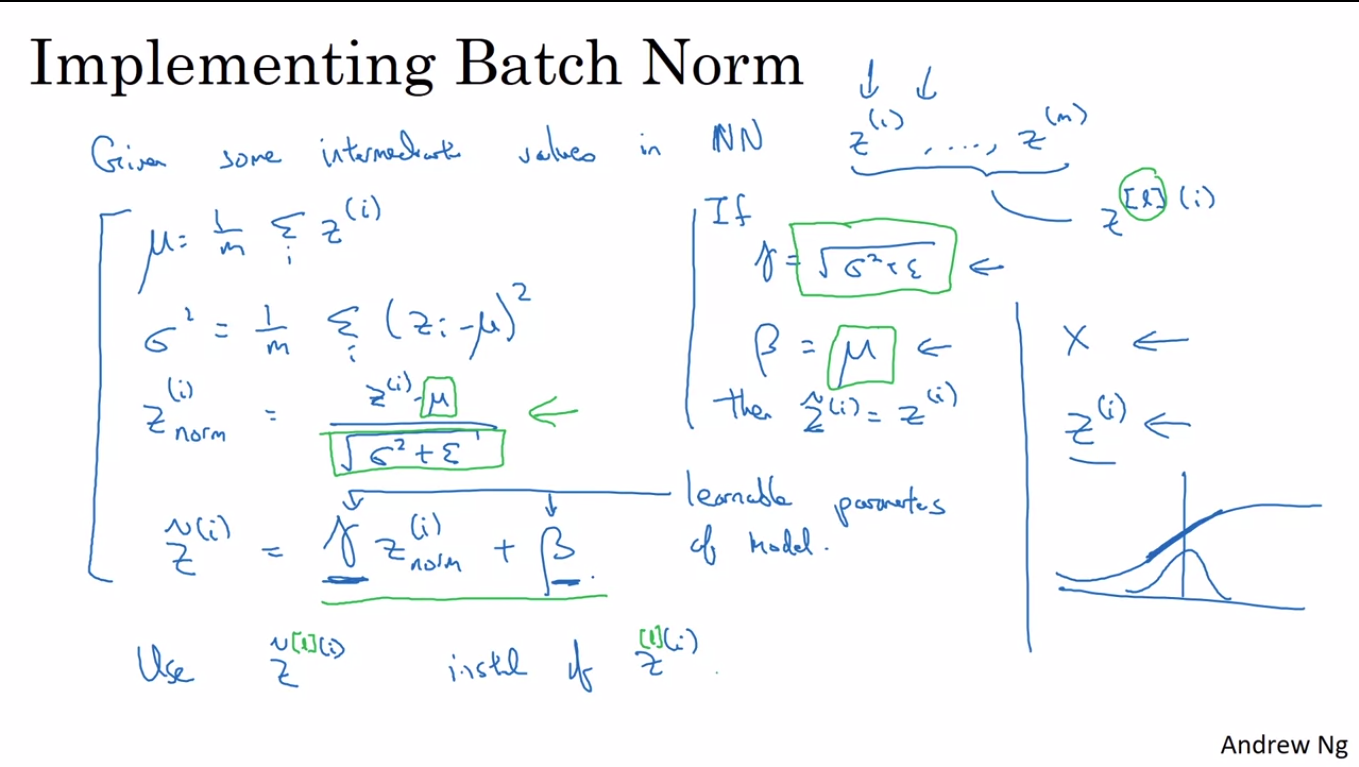 Implementing Batch Norm
Given some intermediate values in NN z^(i), ...., z^(m)
z^[l](i)
μ = 1/m Σ_i z^(i)
σ² = 1/m Σ_i (z_i - μ)²
z^(i)_norm = (z^(i) - μ) / √(σ² + ε)
z̃^(i) = γ z^(i)_norm + β.
learnable parameters
of model.
If
γ = √(σ² + ε) ←
β = μ ←
then z̃^(i) = z^(i)
X ←
z^(i) ←
Use z̃^[l](i) instead of z^[l](i).
Andrew Ng